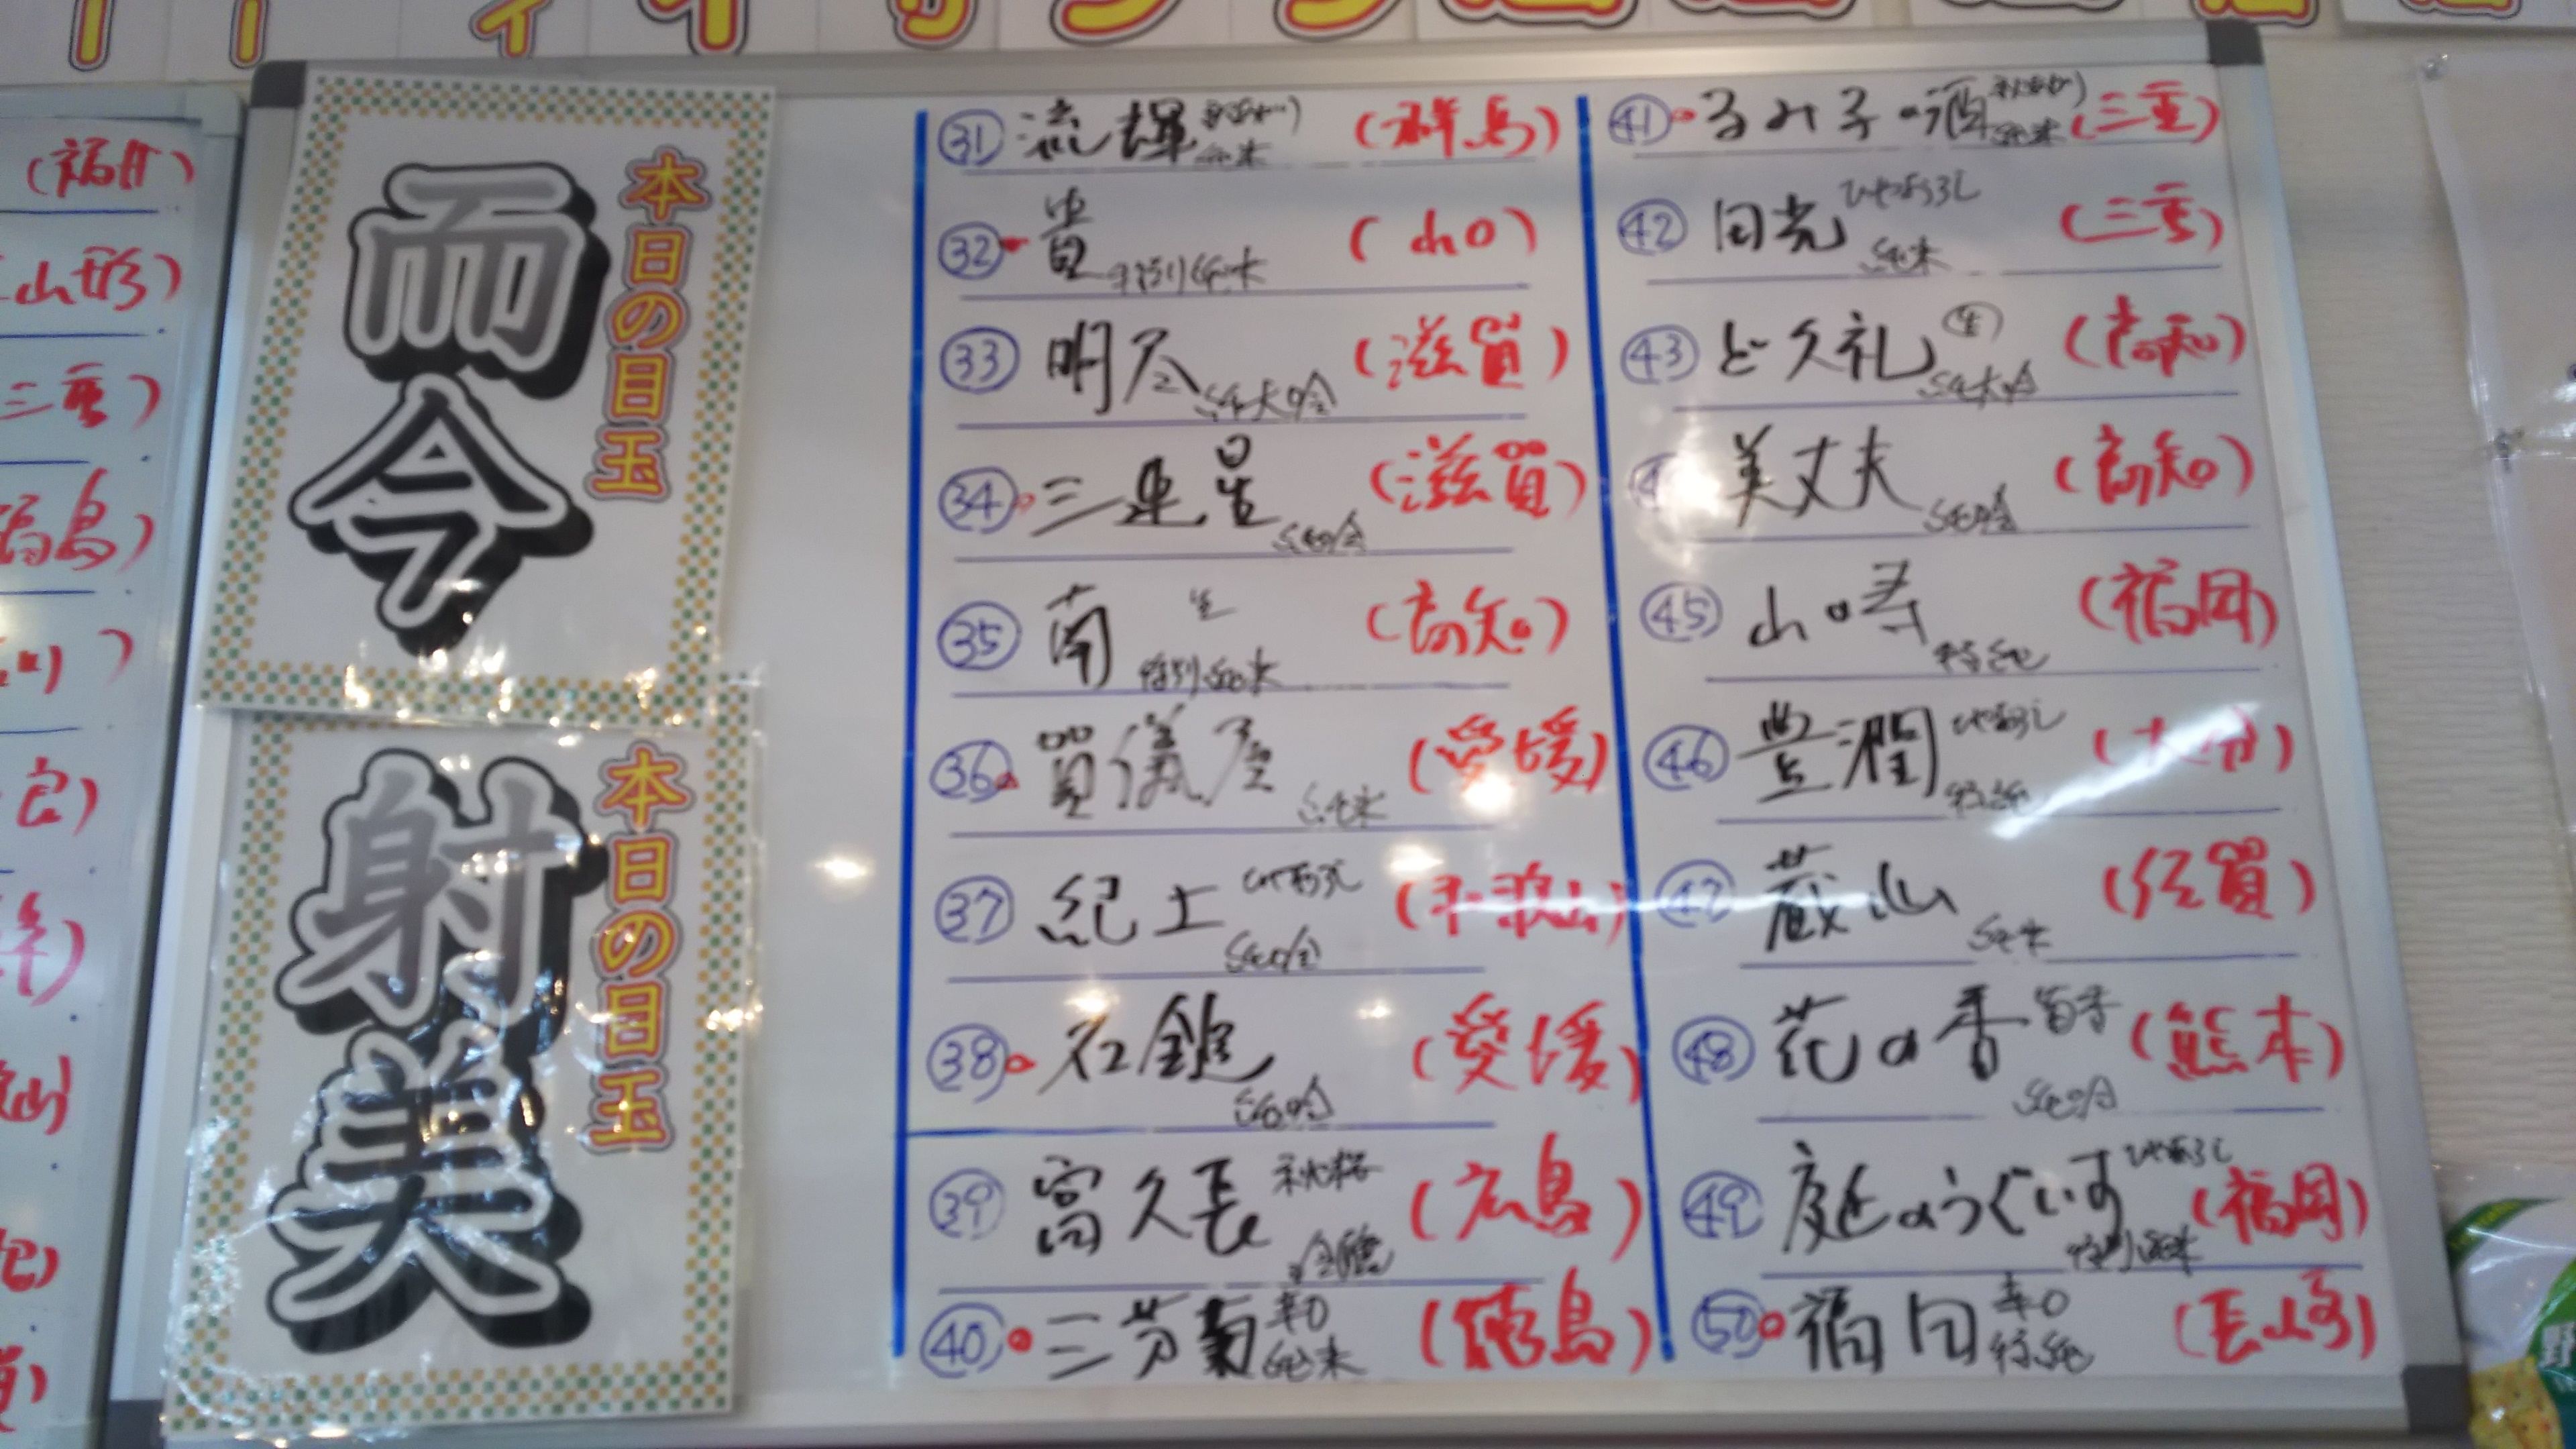 本日の目玉
而今
本日の目玉
射美
(福井)
山形)
三重)
福島)
川)
良)
山)
㉛ 流輝 純米 (群馬)
㉜ 貴 特別純米 (山口)
㉝ 明尽 純大吟 (滋賀)
㉞ 三連星 純吟 (滋賀)
㉟ 南 生 特別純米 (高知)
㊱ 賀儀屋 純米 (愛媛)
㊲ 紀土 ひやおろし 純吟 (和歌山)
㊳ 石鎚 純吟 (愛媛)
㊴ 富久長 秋桜 (広島)
㊵ 三芳菊 辛口 純米 (徳島)
㊶ るみ子の酒 純米 (三重)
㊷ 田光 ひやおろし 純米 (三重)
㊸ ど久礼 生 純大吟 (高知)
美丈夫 純吟 (高知)
㊺ 山の寿 特純 (福岡)
㊻ 豊潤 ひやおろし 特純 (大分)
㊼ 蔵山 純米 (佐賀)
㊽ 花の香 純吟 (熊本)
㊾ 庭のうぐいす ひやおろし 特別純米 (福岡)
㊿ 福田 辛口 特純 (長崎)